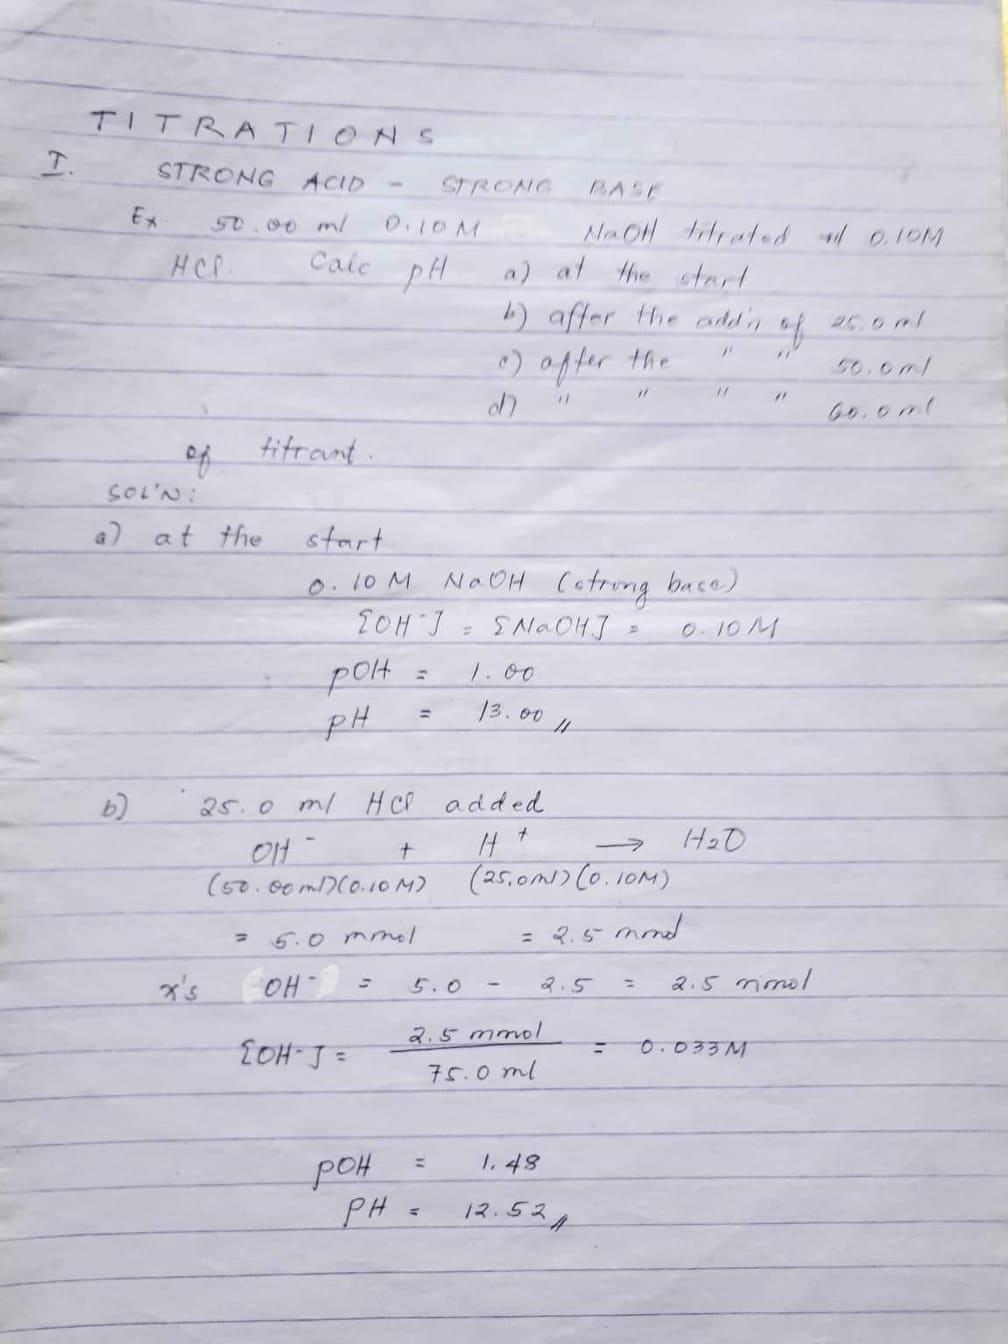 TITRATIONS
I. STRONG ACID - STRONG BASE
Ex. 50.00 ml 0.10 M NaOH titrated w/ 0.10M
HCl. Calc pH a) at the start
b) after the add'n of 25.0 ml
c) after the " " 50.0 ml
d) " " " " 60.0 ml
of titrant.
SOL'N:
a) at the start
0.10 M NaOH (strong base)
[OH-] = [NaOH] = 0.10 M
pOH = 1.00
pH = 13.00 //
b) 25.0 ml HCl added
OH- + H+ → H2O
(50.00 ml)(0.10 M) (25.0 ml)(0.10M)
= 5.0 mmol = 2.5 mmol
x's OH- = 5.0 - 2.5 = 2.5 mmol
[OH-] = 2.5 mmol / 75.0 ml = 0.033 M
pOH = 1.48
pH = 12.52 //